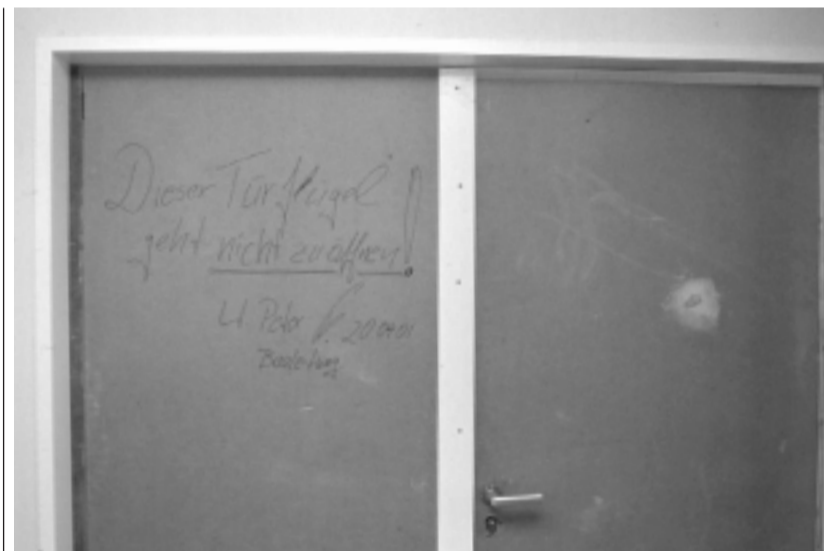 Dieser Türflügel
geht nicht zu öffnen!
U. Peter 20.04.01
Bauleitung